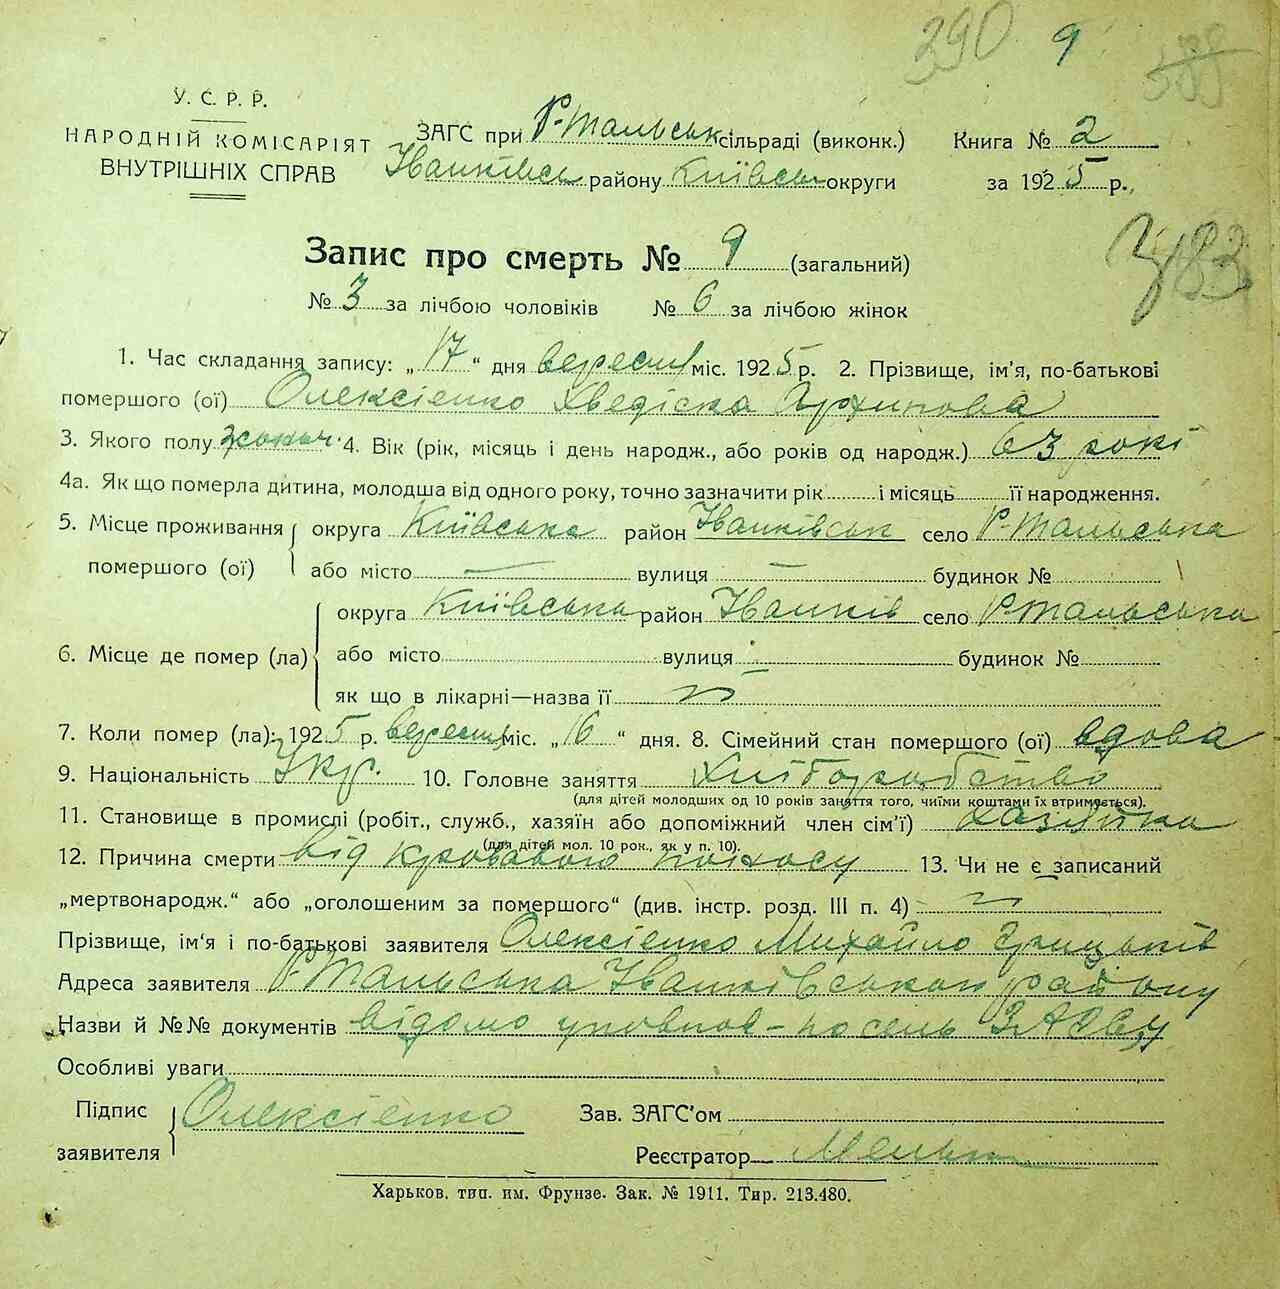 390 9
У. С. Р. Р.
НАРОДНІЙ КОМІСАРІЯТ
ВНУТРІШНІХ СПРАВ
ЗАГС при Р-Тальськ сільраді (виконк.) Книга № 2
Іванківськ району Київськ округи за 1925 р.,
Запис про смерть № 9 (загальний)
№ 3 за лічбою чоловіків № 6 за лічбою жінок
1. Час складання запису: „17“ дня вересня міс. 1925 р. 2. Прізвище, ім’я, по-батькові
помершого (ої) Олексієнко Хведіска Архипова
3. Якого полу жоноч. 4. Вік (рік, місяць і день народж., або років од народж.) 63 рокі
4а. Як що померла дитина, молодша від одного року, точно зазначити рік і місяць її народження.
5. Місце проживання помершого (ої) округа Київська район Іванківськ село Р-Тальська
або місто — вулиця — будинок №
6. Місце де помер (ла) округа Київська район Іванків село Р-Тальська
або місто вулиця будинок №
як що в лікарні—назва її
7. Коли помер (ла): 1925 р. вересня міс. „16“ дня. 8. Сімейний стан помершого (ої) вдова
9. Національність Укр. 10. Головне заняття Хліборобство
(для дітей молодших од 10 років заняття того, чиїми коштами їх втримається).
11. Становище в промислі (робіт., служб., хазяїн або допоміжний член сім’ї) хазяйка
(для дітей мол. 10 рок., як у п. 10).
12. Причина смерти від кровавого поносу 13. Чи не є записаний
„мертвонародж.“ або „оголошеним за помершого“ (див. інстр. розд. III п. 4)
Прізвище, ім‘я і по-батькові заявителя Олексієнко Михайло Грицьків
Адреса заявителя Р-Тальська Іванківського району
Назви й №№ документів відомо
Особливі уваги
Підпис заявителя Олексієнко Зав. ЗАГС’ом
Реєстратор
Харьков. тип. им. Фрунзе. Зак. № 1911. Тир. 213.480.